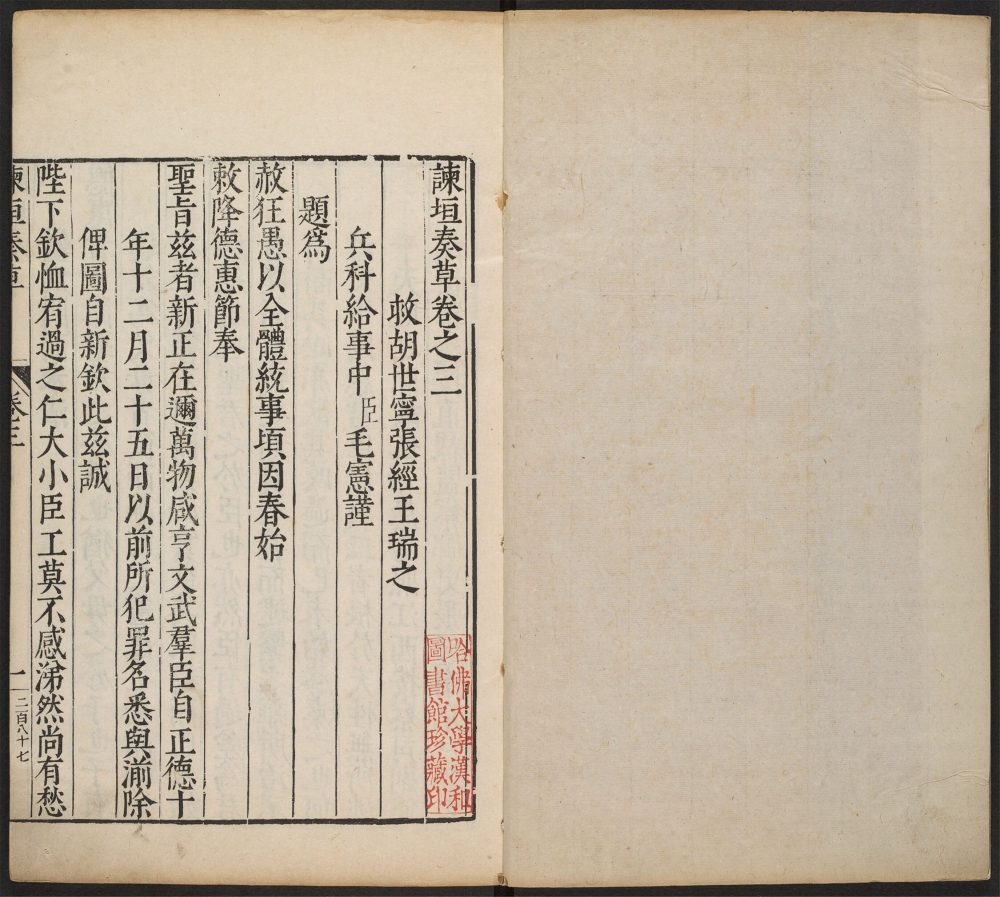 諫垣奏草卷之三
救胡世寧張經王瑞之
兵科給事中臣毛憲謹
題爲
赦狂愚以全體統事頃因春始
敕降德惠節奉
聖旨兹者新正在邇萬物咸亨文武羣臣自正德十
年十二月二十五日以前所犯罪名悉與湔除
俾圖自新欽此兹誠
陛下欽恤宥過之仁大小臣工莫不感涕然尚有愁
諫垣奏草 卷三 一 二百八十七
哈佛大學漢和
圖書館珍藏印